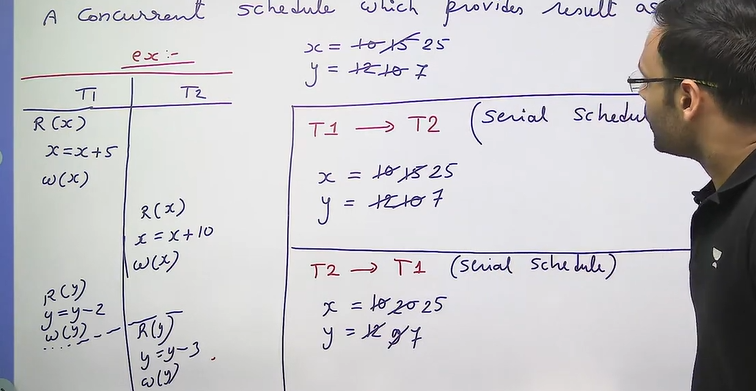 A Concurrent schedule which provides result as
ex:-
T1 T2
R(x)
x=x+5
w(x)
R(x)
x = x+10
w(x)
R(y)
y=y-2
w(y)
R(y)
y=y-3
w(y)
x = 10 15 25
y = 12 10 7
T1 → T2 (serial schedu
x = 10 15 25
y = 12 10 7
T2 → T1 (serial schedule)
x = 10 20 25
y = 12 9 7